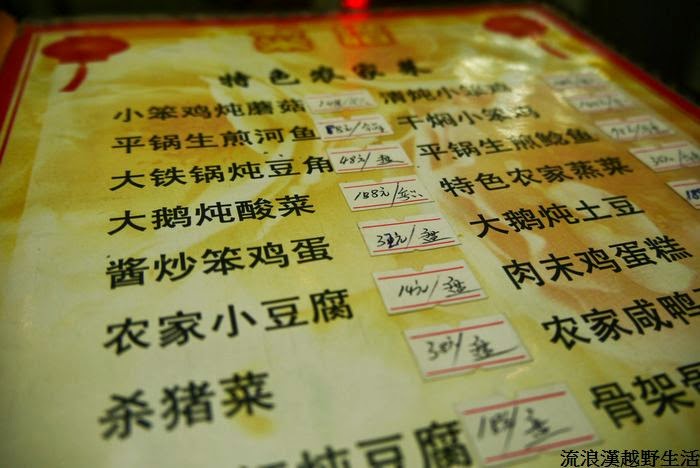 特色农家菜
小笨鸡炖磨菇 清炖小笨鸡
平锅生煎河鱼 干焖小笨鸡
大铁锅炖豆角 48元/盘 平锅生煎鲶鱼
大鹅炖酸菜 188元/盘 特色农家蒸菜
酱炒笨鸡蛋 大鹅炖土豆
农家小豆腐 14元/盘 肉末鸡蛋糕
杀猪菜 农家咸鸭
炖豆腐 骨架
流浪漢越野生活